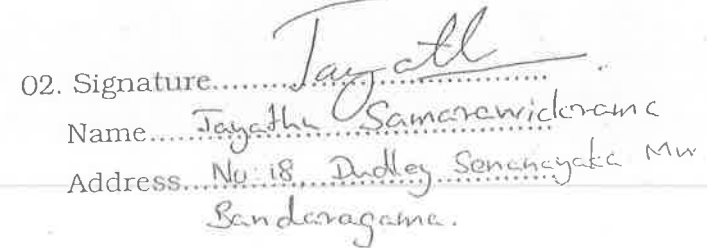 02. Signature.......Jayath.......
Name.....Jayathu Samarawickrama
Address...No: 18, Dudley Senanayaka Mw
Bandaragama.